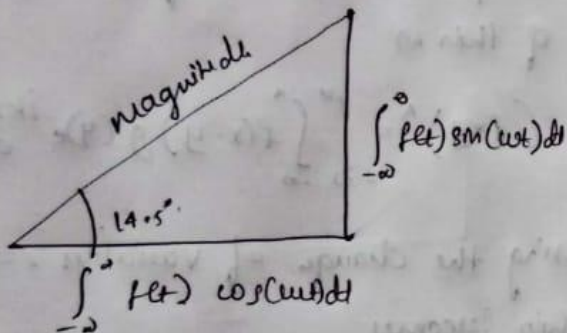 magnitude
∫_{-∞}^{∞} f(t) sin(ωt) dt
14.5°
∫_{-∞}^{∞} f(t) cos(ωt) dt